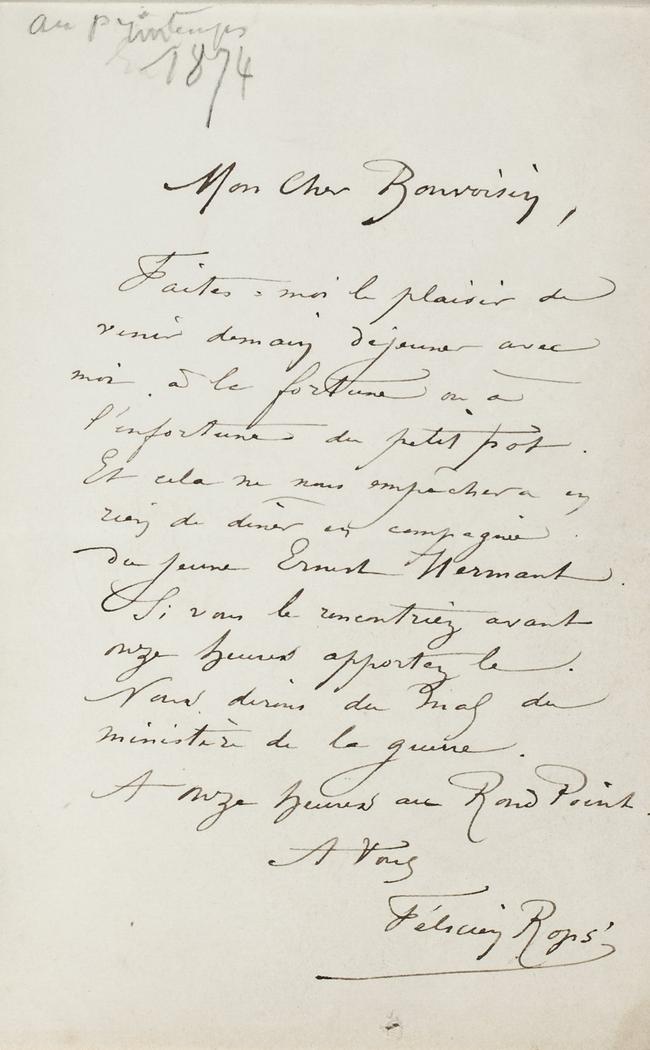 au printemps
1874
Mon Cher Bonvoisin,
Faites-moi le plaisir de
venir demain déjeuner avec
moi à la fortune ou à
l'infortune du petit pot.
Et cela ne nous empêchera en
rien de dîner en compagnie
du jeune Ernest Hermant.
Si vous le rencontriez avant
onze heures apportez le.
Nous dirons du mal du
ministère de la guerre.
A onze heures au Rond Point.
A Vous
Félicien Rops